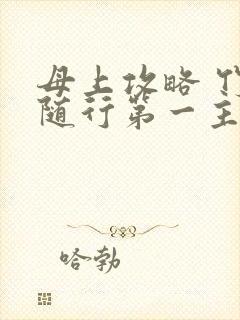 母上攻略
随行第一主
哈勃